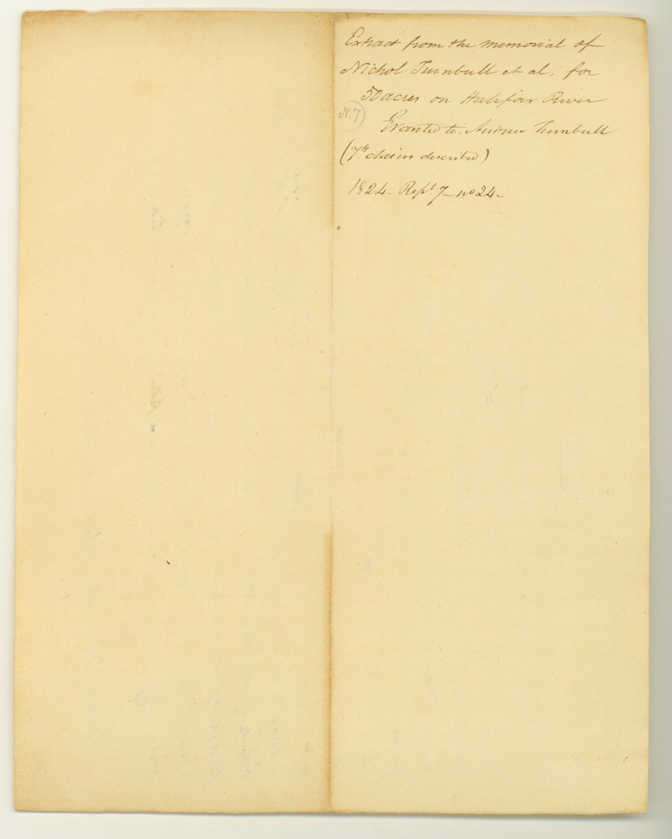 Extract from the memorial of
Nichol Turnbull et al, for
50 acres on Halifax River
N. 7
Granted to Andrew Turnbull
(7th claim described)
1824 - Rept 7 - no 24 -